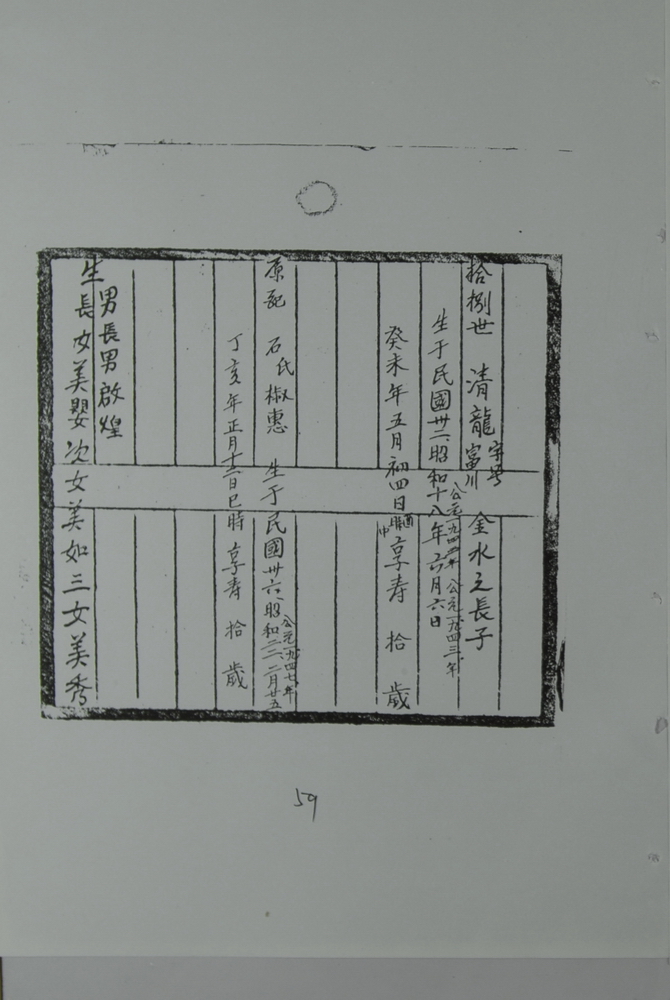 拾捌世 清龍 字号富川 金水之長子
生于民國卅二昭和十八年六月六日
公元一九四三年
癸未年五月初四日酉時 享壽 拾 歲
中
原配 石氏椒惠 生于民國卅六昭和二二、二月廿五
公元一九四七年
丁亥年正月十二日巳時 享壽 拾 歲
生男長男啟煌
長女美嬰次女美如三女美秀
59